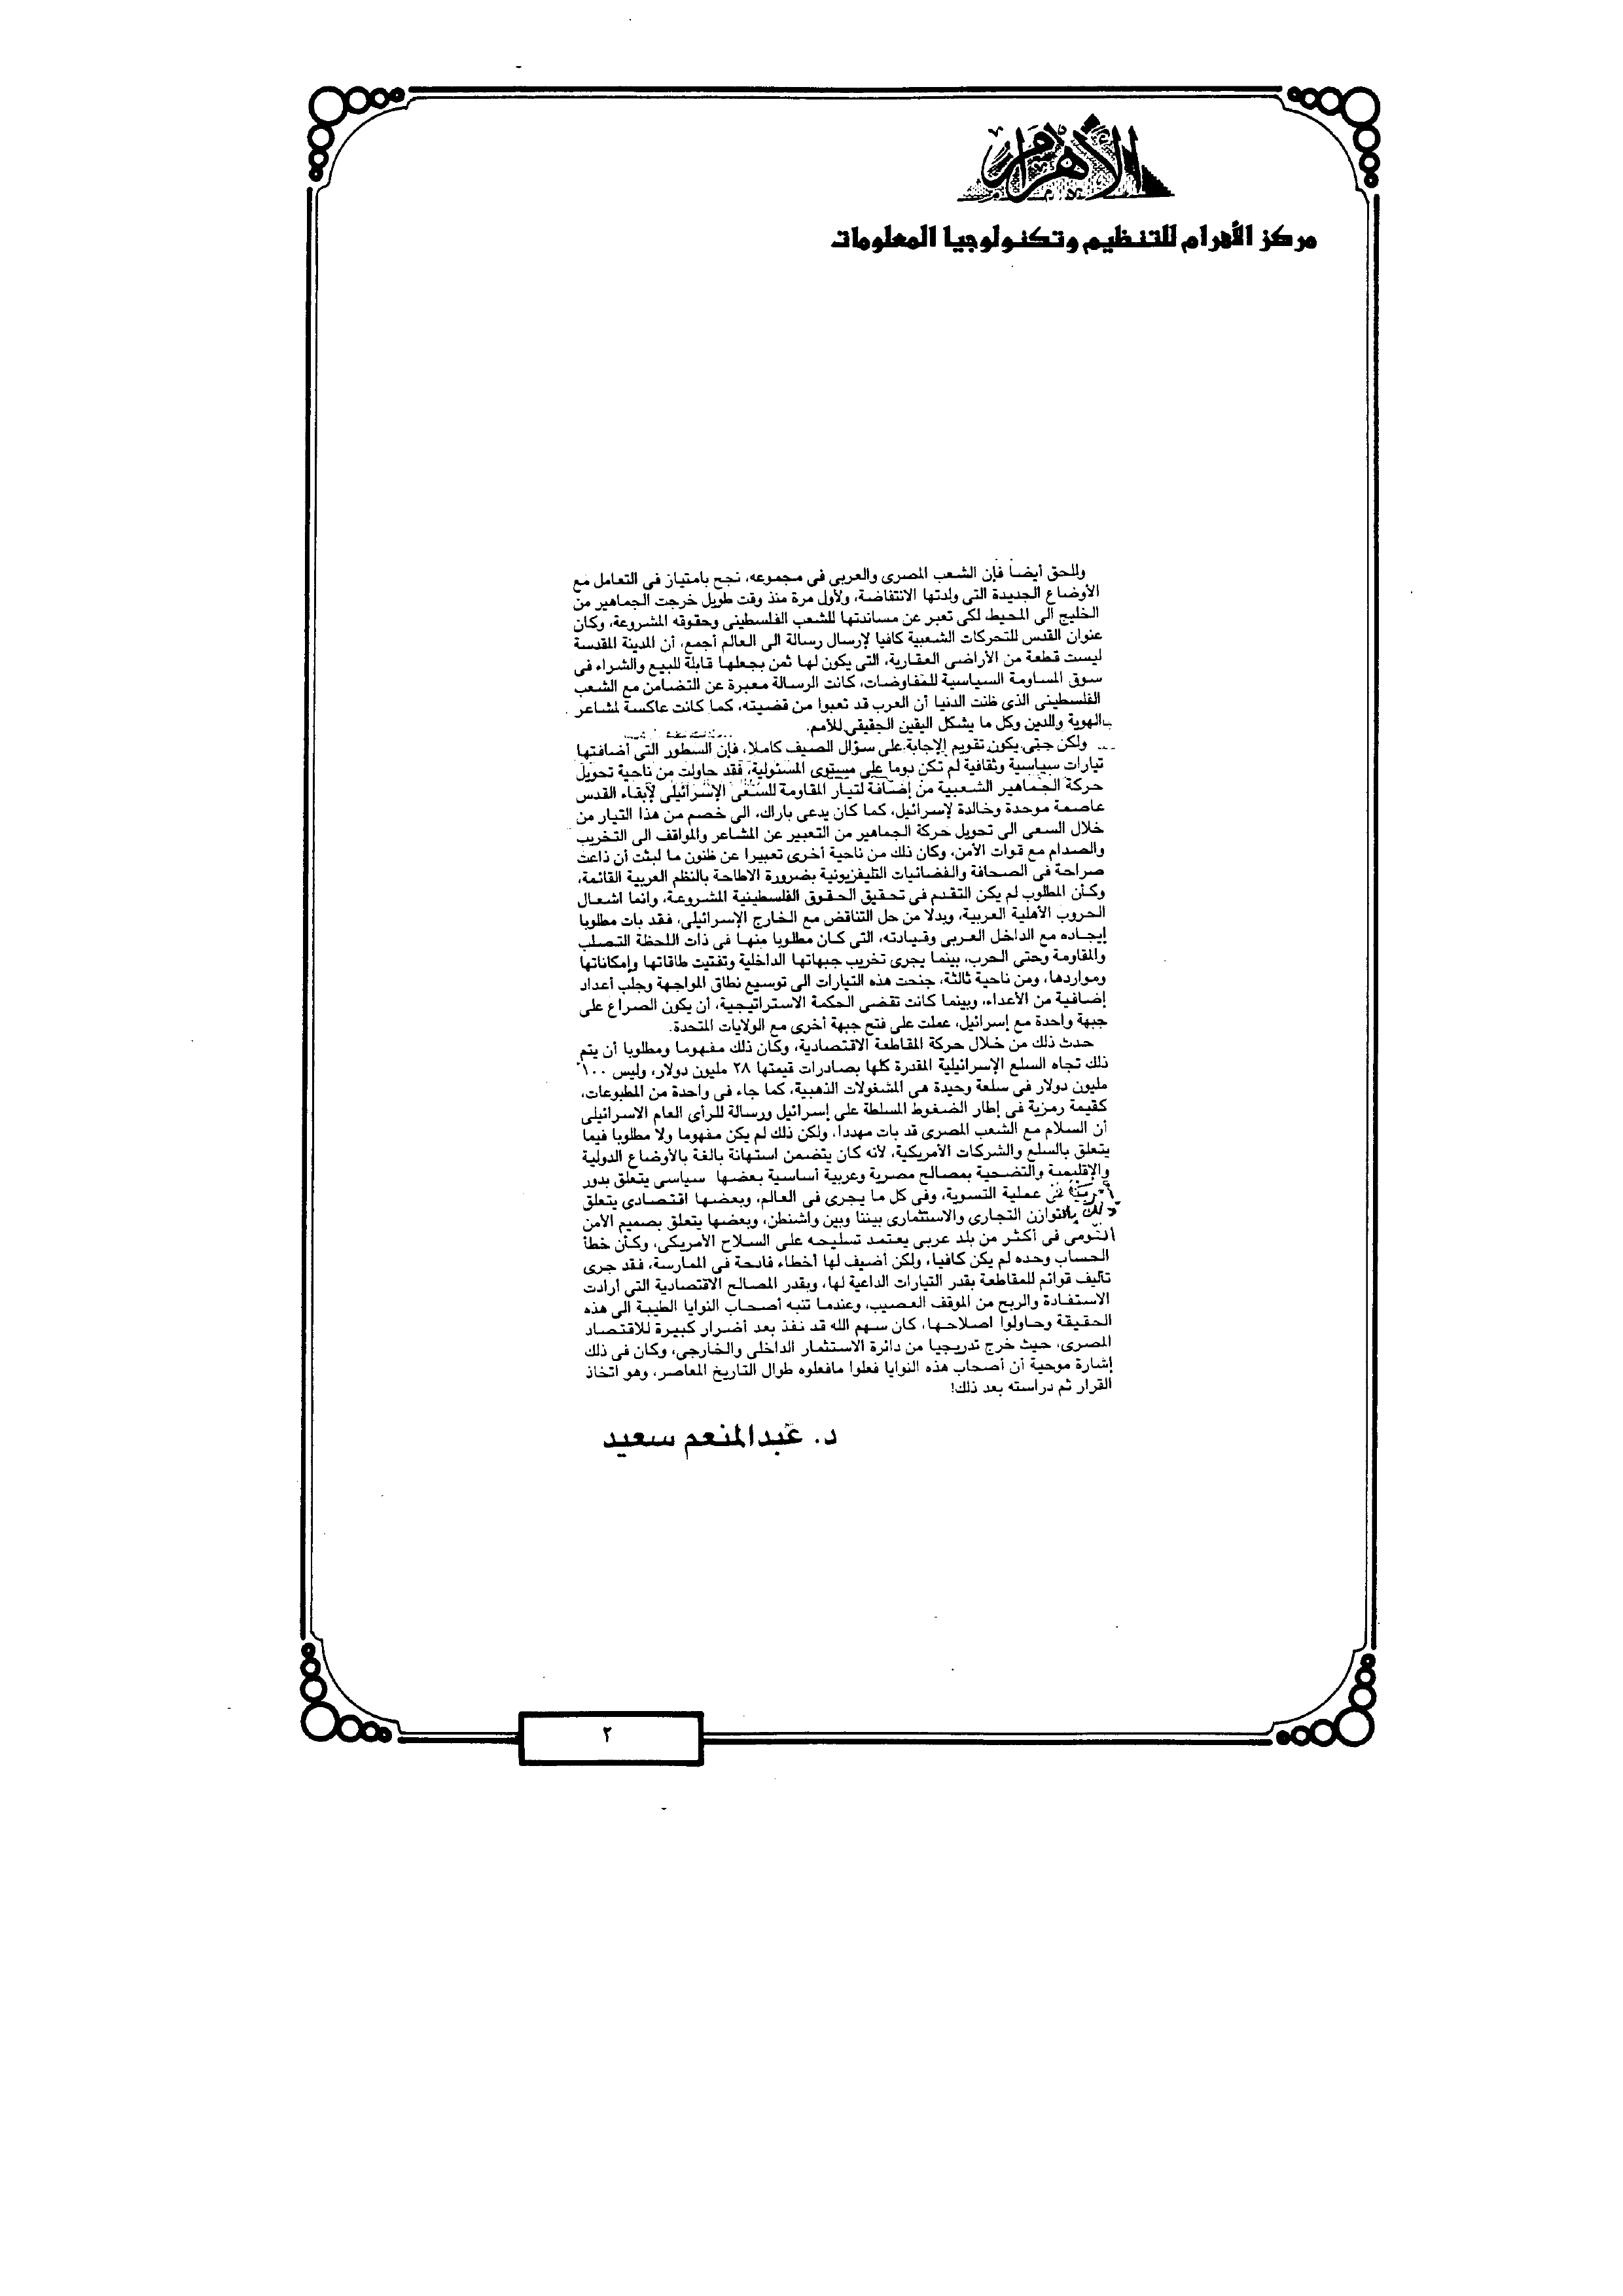 الأهرام
مركز الأهرام للتنظيم وتكنولوجيا المعلومات
وللحق أيضا فإن الشعب المصرى والعربى فى مجموعه، نجح بامتياز فى التعامل مع
الأوضاع الجديدة التى ولدتها الانتفاضة، ولأول مرة منذ وقت طويل خرجت الجماهير من
الخليج الى المحيط لكى تعبر عن مساندتها للشعب الفلسطينى وحقوقه المشروعة، وكان
عنوان القدس للتحركات الشعبية كافيا لإرسال رسالة الى العالم أجمع، أن المدينة المقدسة
ليست قطعة من الأراضى العقارية، التى يكون لها ثمن يجعلها قابلة للبيع والشراء فى
سوق المساومة السياسية للمفاوضات، كانت الرسالة معبرة عن التضامن مع الشعب
الفلسطينى الذى ظنت الدنيا أن العرب قد تعبوا من قضيته، كما كانت عاكسة لمشاعر
الهوية والدين وكل ما يشكل اليقين الحقيقى للأمم.
ولكن حتى يكون تقويم الإجابة على سؤال الصيف كاملا، فإن السطور التى أضافتها
تيارات سياسية وثقافية لم تكن دوما على مستوى المسئولية، فقد حاولت من ناحية تحويل
حركة الجماهير الشعبية من إضافة لتيار المقاومة للسعى الإسرائيلى لإبقاء القدس
عاصمة موحدة وخالدة لإسرائيل، كما كان يدعى باراك، الى خصم من هذا التيار من
خلال السعى الى تحويل حركة الجماهير من التعبير عن المشاعر والمواقف الى التخريب
والصدام مع قوات الأمن، وكان ذلك من ناحية أخرى تعبيرا عن ظنون ما لبثت أن ذاعت
صراحة فى الصحافة والفضائيات التليفزيونية بضرورة الاطاحة بالنظم العربية القائمة،
وكأن المطلوب لم يكن التقدم فى تحقيق الحقوق الفلسطينية المشروعة، وانما اشعال
الحروب الأهلية العربية، وبدلا من حل التناقض مع الخارج الإسرائيلى، فقد بات مطلوبا
إيجاده مع الداخل العربى وقيادته، التى كان مطلوبا منها فى ذات اللحظة التصلب
والمقاومة وحتى الحرب، بينما يجرى تخريب جبهاتها الداخلية وتفتيت طاقاتها وإمكاناتها
ومواردها، ومن ناحية ثالثة، جنحت هذه التيارات الى توسيع نطاق المواجهة وجلب أعداد
إضافية من الأعداء، وبينما كانت تقضى الحكمة الاستراتيجية، أن يكون الصراع على
جبهة واحدة مع إسرائيل، عملت على فتح جبهة أخرى مع الولايات المتحدة.
حدث ذلك من خلال حركة المقاطعة الاقتصادية، وكان ذلك مفهوما ومطلوبا أن يتم
ذلك تجاه السلع الإسرائيلية المقدرة كلها بصادرات قيمتها ٢٨ مليون دولار، وليس ١٠٠
مليون دولار فى سلعة وحيدة هى المشغولات الذهبية، كما جاء فى واحدة من المطبوعات،
كقيمة رمزية فى إطار الضغوط المسلطة على إسرائيل ورسالة للرأى العام الاسرائيلى
أن السلام مع الشعب المصرى قد بات مهددا، ولكن ذلك لم يكن مفهوما ولا مطلوبا فيما
يتعلق بالسلع والشركات الأمريكية، لأنه كان يتضمن استهانة بالغة بالأوضاع الدولية
والإقليمية والتضحية بمصالح مصرية وعربية أساسية بعضها سياسى يتعلق بدور
عملية التسوية، وفى كل ما يجرى فى العالم، وبعضها اقتصادى يتعلق
بالتوازن التجارى والاستثمارى بيننا وبين واشنطن، وبعضها يتعلق بصميم الأمن
القومى فى أكثر من بلد عربى يعتمد تسليحه على السلاح الأمريكى، وكأن خطأ
الحساب وحده لم يكن كافيا، ولكن أضيف لها أخطاء فادحة فى الممارسة، فقد جرى
تأليف قوائم للمقاطعة بقدر التيارات الداعية لها، وبقدر المصالح الاقتصادية التى أرادت
الاستفادة والربح من الموقف العصيب، وعندما تنبه أصحاب النوايا الطيبة الى هذه
الحقيقة وحاولوا اصلاحها، كان سهم الله قد نفذ بعد أضرار كبيرة للاقتصاد
المصرى، حيث خرج تدريجيا من دائرة الاستثمار الداخلى والخارجى، وكان فى ذلك
إشارة موحية أن أصحاب هذه النوايا فعلوا مافعلوه طوال التاريخ المعاصر، وهو اتخاذ
القرار ثم دراسته بعد ذلك!
د. عبدالمنعم سعيد
٢